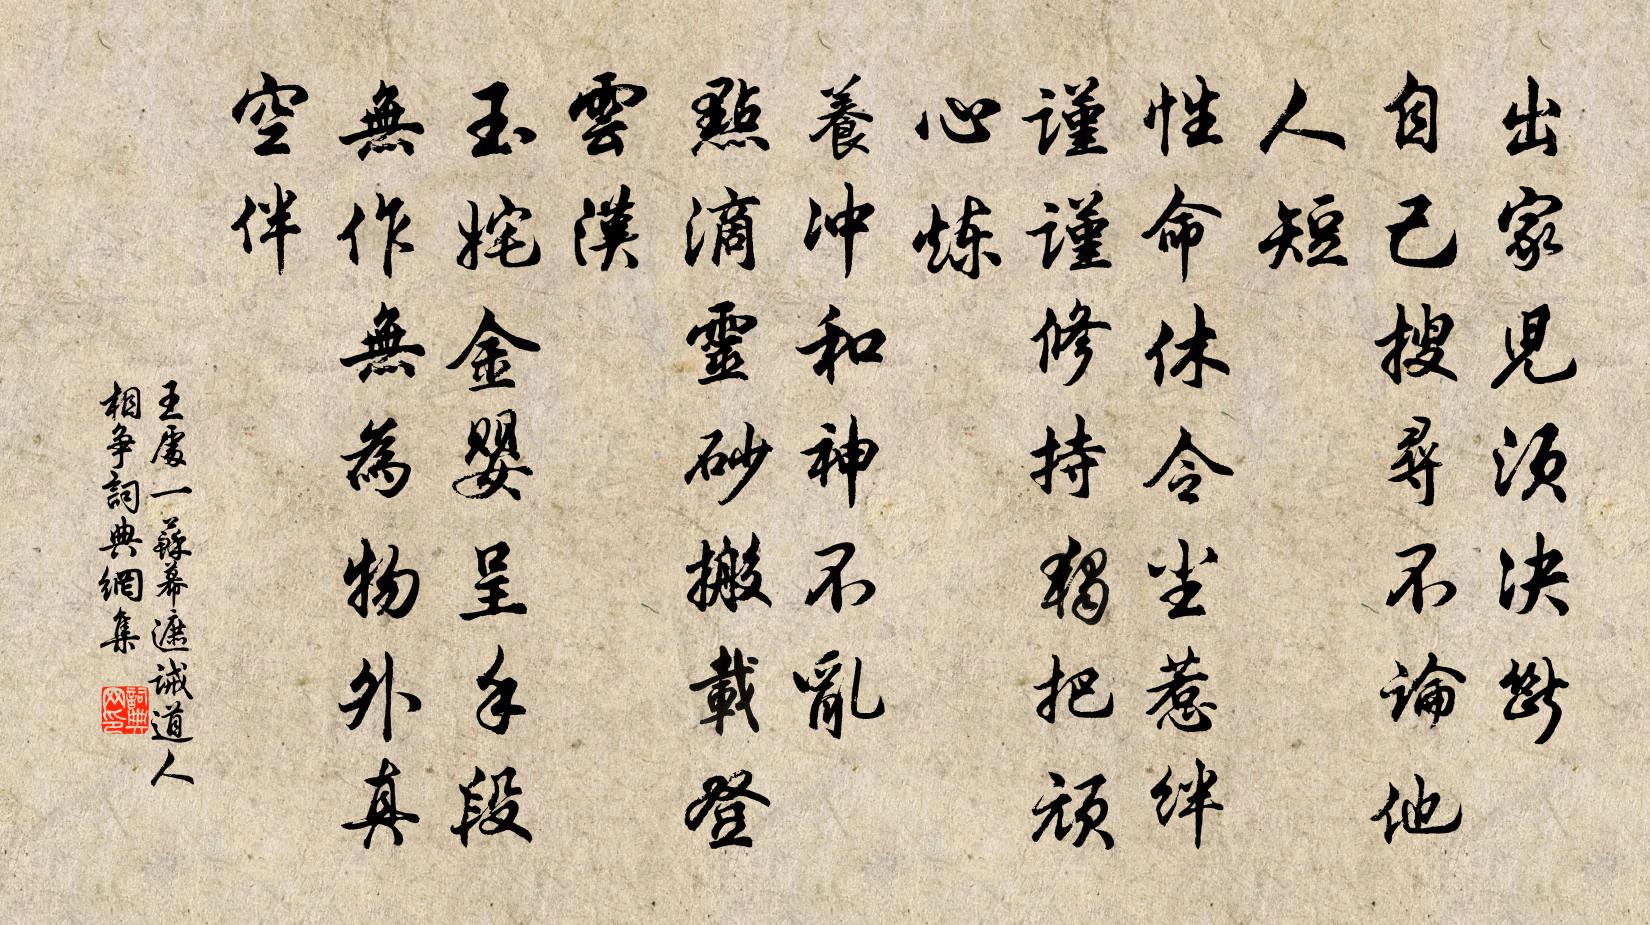 出家児須決斷
自己搜尋不論他
人短
性命休令尘惹絆
謹謹修持獨把頑
心炼
養冲和神不亂
點滴靈砂搬載登
雲漢
玉姹金嬰呈手段
無作無為物外真
空伴
王處一蘇幕遮誡道人
相争詞典網集
詞典网印